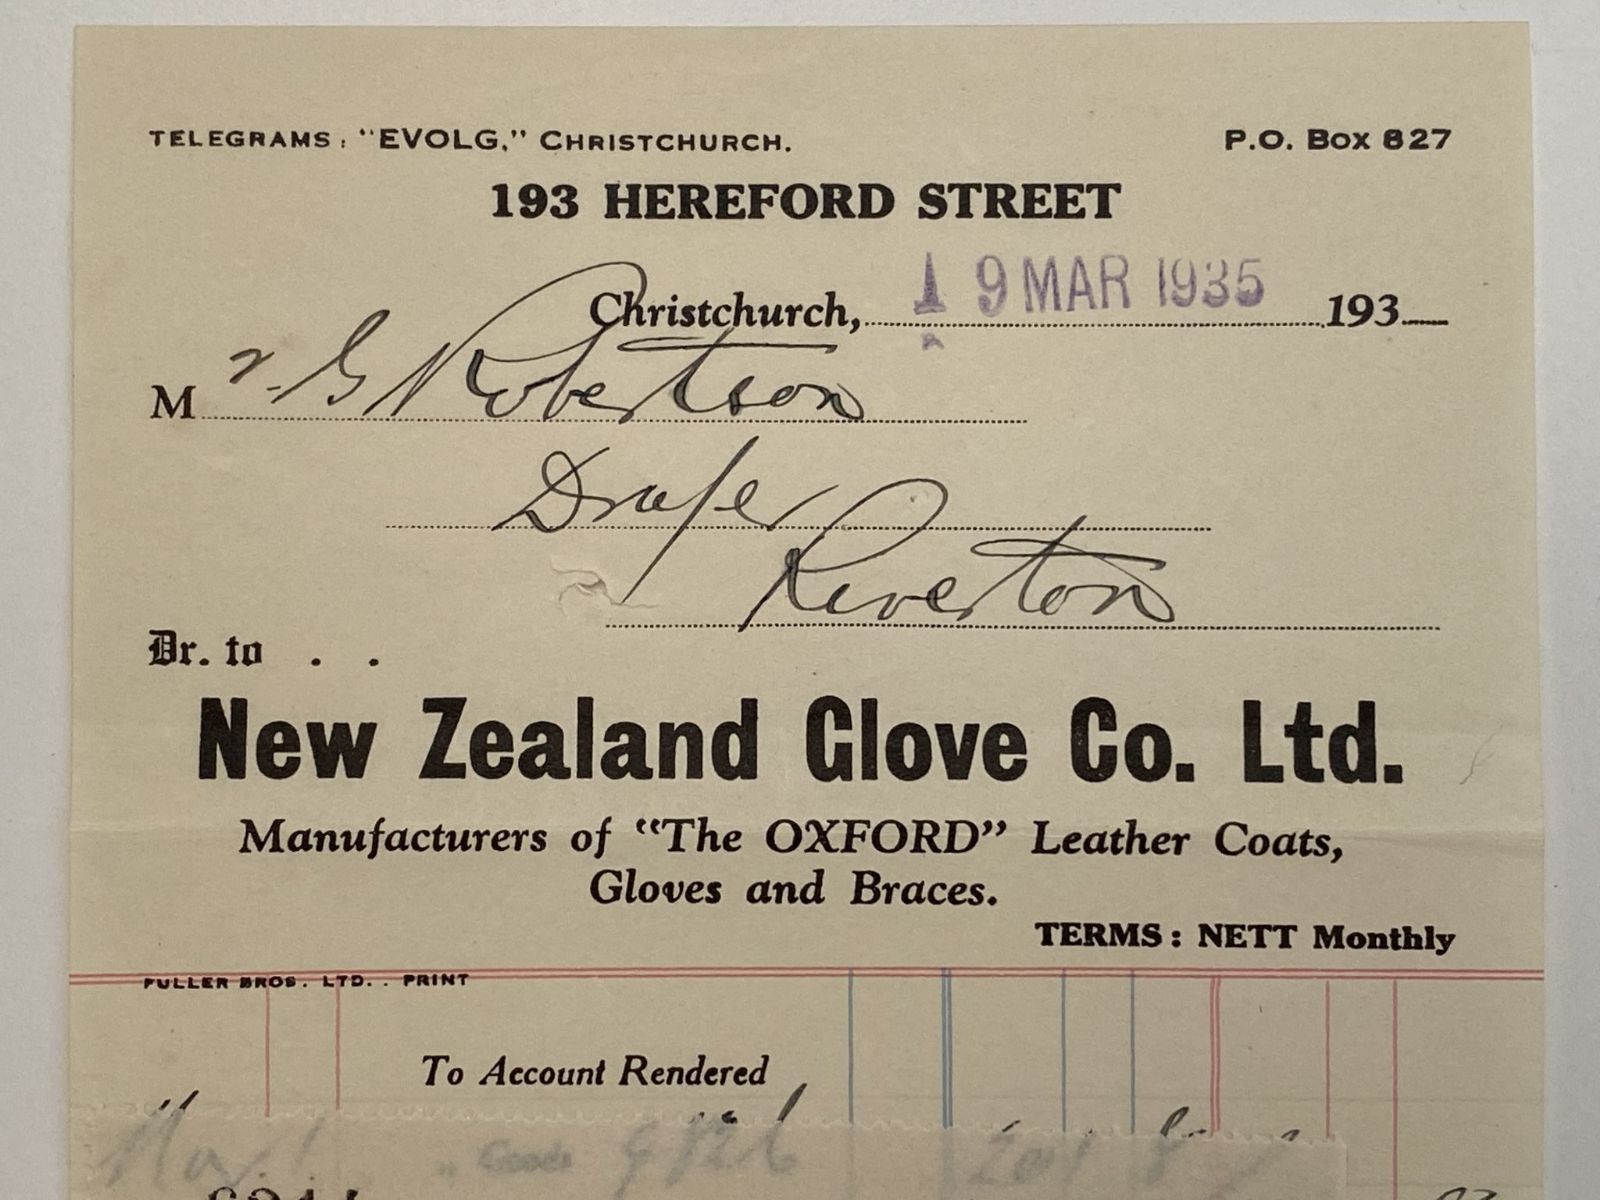 TELEGRAMS: "EVOLG," CHRISTCHURCH. P.O. BOX 827
193 HEREFORD STREET
Christchurch, 19 MAR 1935 193
Mr. G N Robertson
Draper
Riverton
Dr. to . .
New Zealand Glove Co. Ltd.
Manufacturers of "The OXFORD" Leather Coats,
Gloves and Braces.
TERMS: NETT Monthly
FULLER BROS. LTD. . PRINT
To Account Rendered
Goods